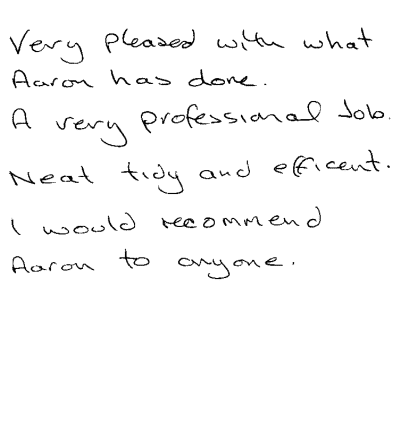 Very pleased with what
Aaron has done.
A very professional Job.
Neat tidy and efficent.
I would recommend
Aaron to anyone.